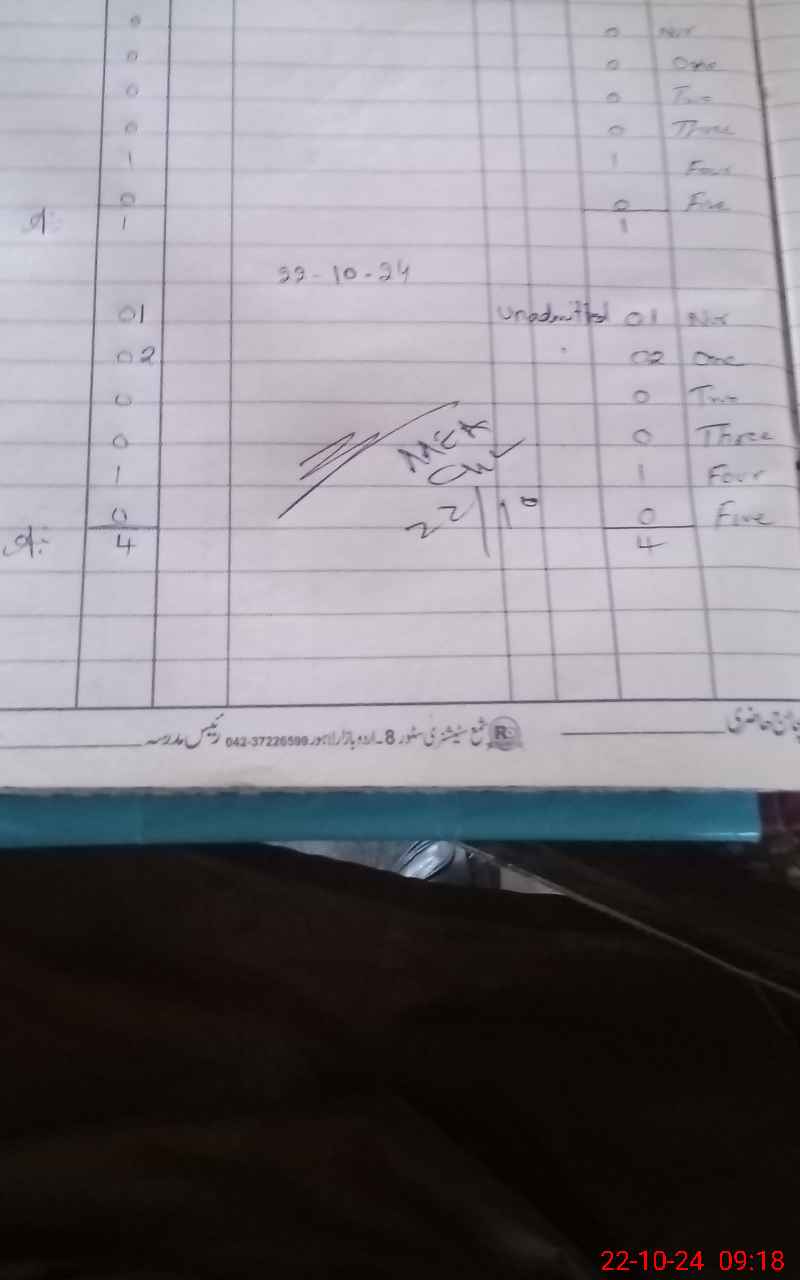 0 0 Nur
0 0 One
0 0 Two
0 0 Three
1 1 Four
0 0 Five
1 1
22-10-24
01 Unadmitted 01 Nur
02 02 One
0 0 Two
0 0 Three
1 1 Four
0 0 Five
4 4
22/10
رئیس مدرسہ شمع سٹیشنری سٹور 8۔اردو بازار لاہور 042-37226599 R
22-10-24 09:18